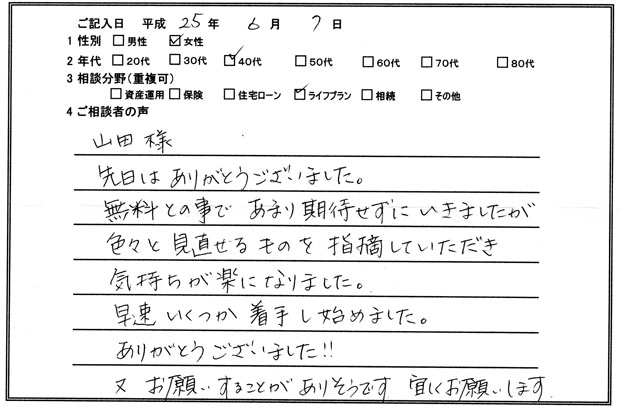 ご記入日 平成 25 年 6 月 7 日
1 性別 □男性 ☑女性
2 年代 □20代 □30代 ☑40代 □50代 □60代 □70代 □80代
3 相談分野(重複可)
□資産運用 □保険 □住宅ローン ☑ライフプラン □相続 □その他
4 ご相談者の声
山田 様
先日は ありがとうございました。
無料との事で あまり期待せずに いきましたが
色々と 見直せる ものを 指摘していただき
気持ちが楽になりました。
早速 いくつか 着手し始めました。
ありがとうございました!!
又 お願いすることがありそうです 宜しくお願いします